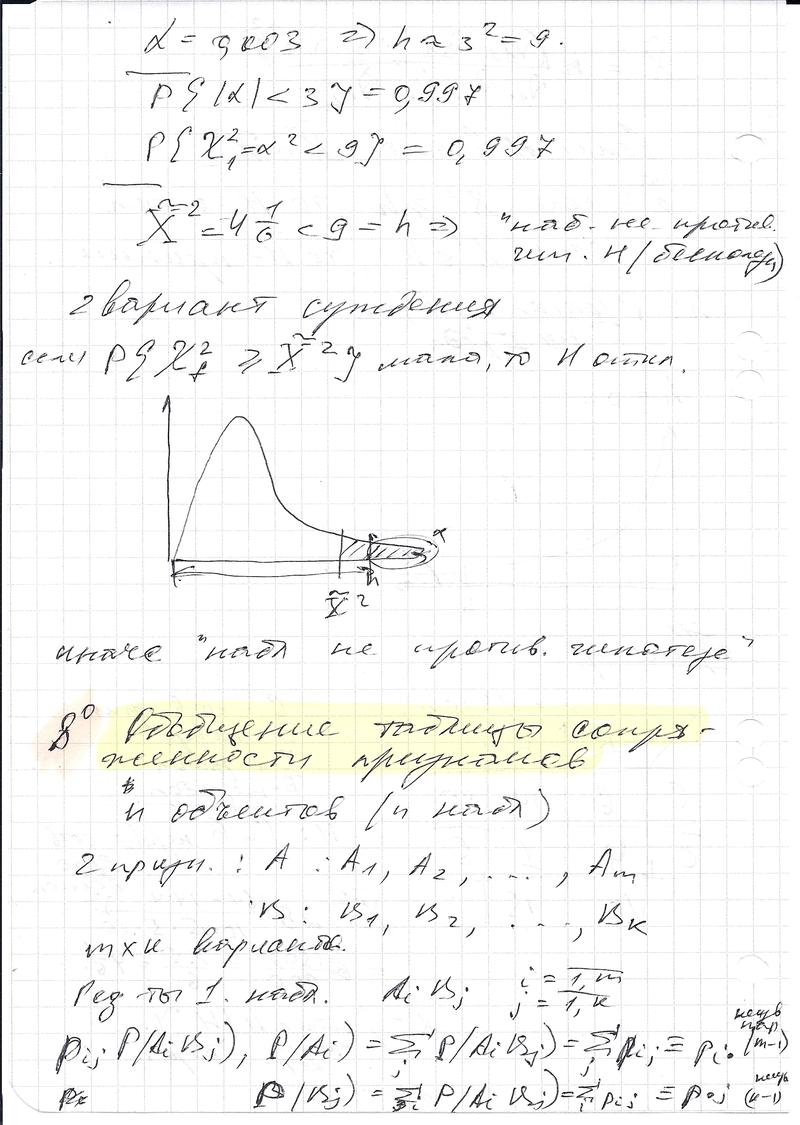 α = 0,003 ⇒ h ≈ 3² = 9.
P{|α| < 3} = 0,997
P{χ²₁ = α² < 9} = 0,997
X̃² = 4 1/6 < 9 = h ⇒ "наб. не против.
гип. H (бесполезн)
2 вариант суждения
если P{χ²_f ≥ X̃²} мала, то H откл.
α
h
X̃²
иначе "набл не против. гипотезе"
8⁰ Обобщение таблицы сопря-
женности признаков
n объектов (n набл)
2 призн. : A : A₁, A₂, ..., Aₘ
B : B₁, B₂, ..., Bₖ
m×k варианта.
Рез-ты 1 набл. AᵢBⱼ i = 1,m
j = 1,k
pᵢⱼ P(AᵢBⱼ), P(Aᵢ) = Σⱼ P(AᵢBⱼ) = Σⱼ pᵢⱼ ≡ pᵢ• (m-1)
P(Bⱼ) = Σᵢ P(AᵢBⱼ) = Σᵢ pᵢⱼ ≡ p•ⱼ (k-1)